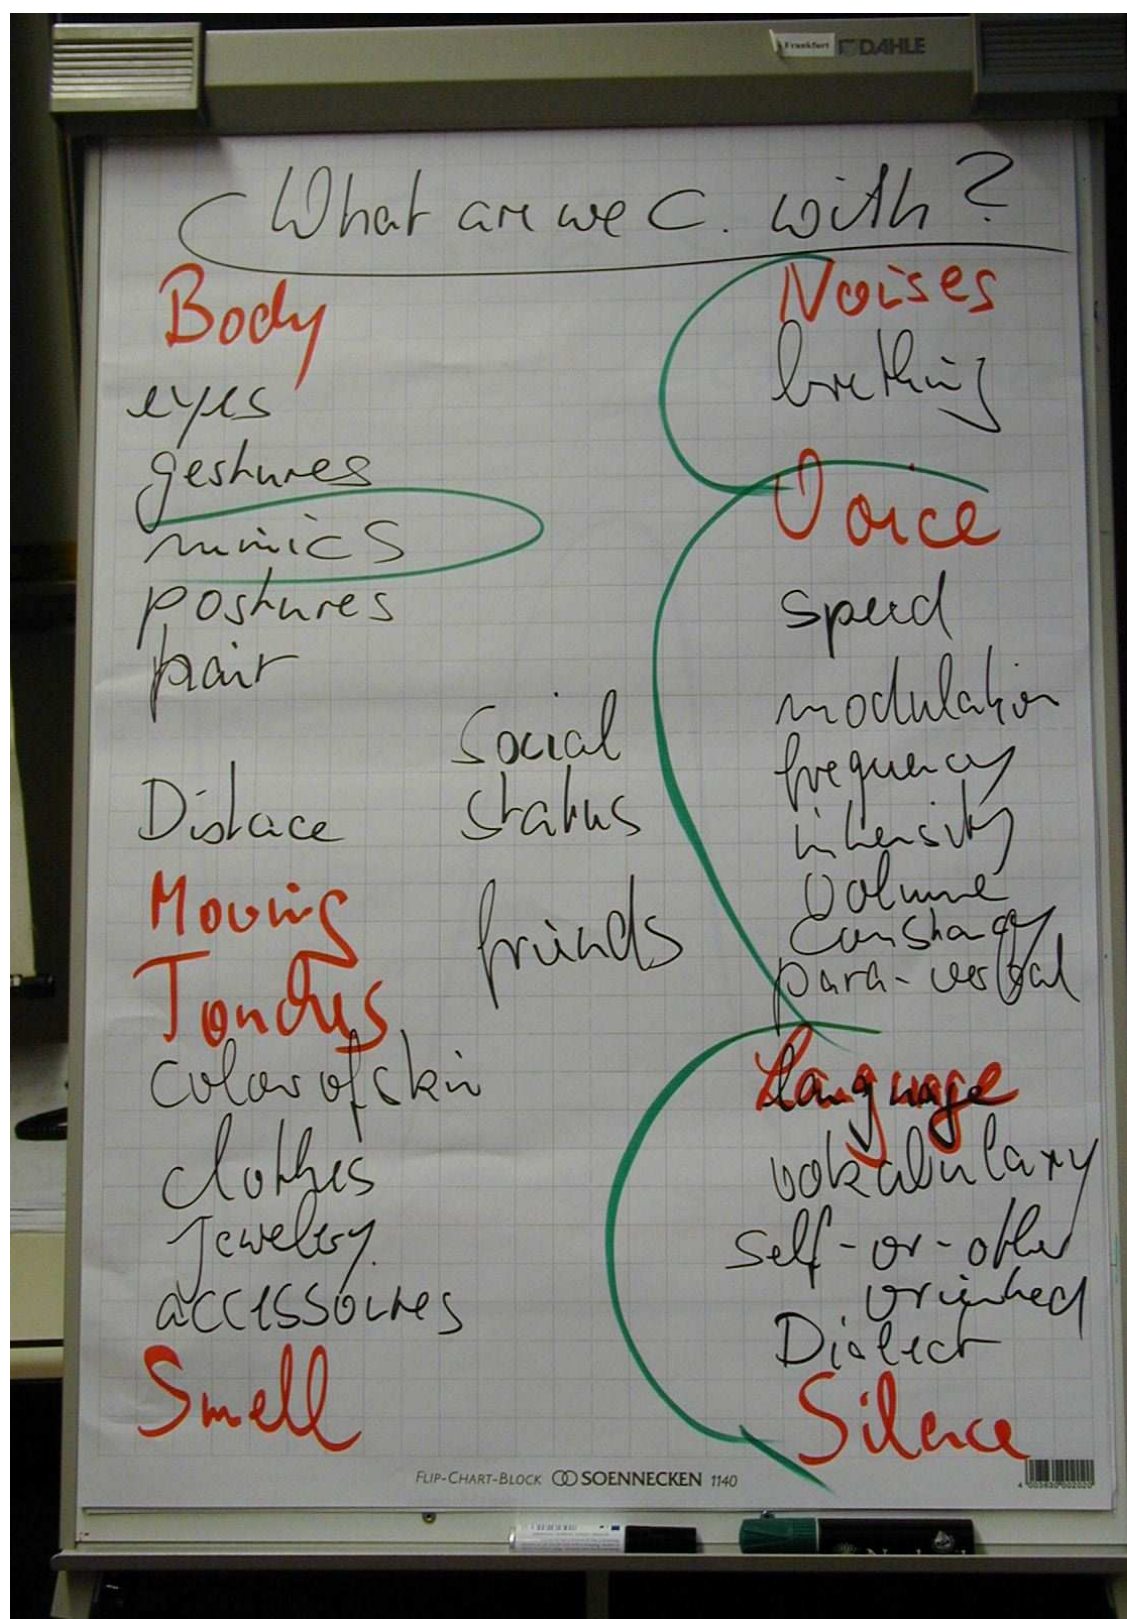 Frankfurt DAHLE
What are we C. with?
Body
eyes
gestures
mimics
postures
hair
Distace
Moving
Touches
Color of skin
clothes
Jewelery
accessoires
Smell
Social
status
friends
Noises
brething
Voice
speed
modulation
frequency
intensity
Volume
Constancy
para-verbal
Language
vokabulary
self-or-other
oriented
Dialect
Silence
FLIP-CHART-BLOCK SOENNECKEN 1140
4 003630 002020